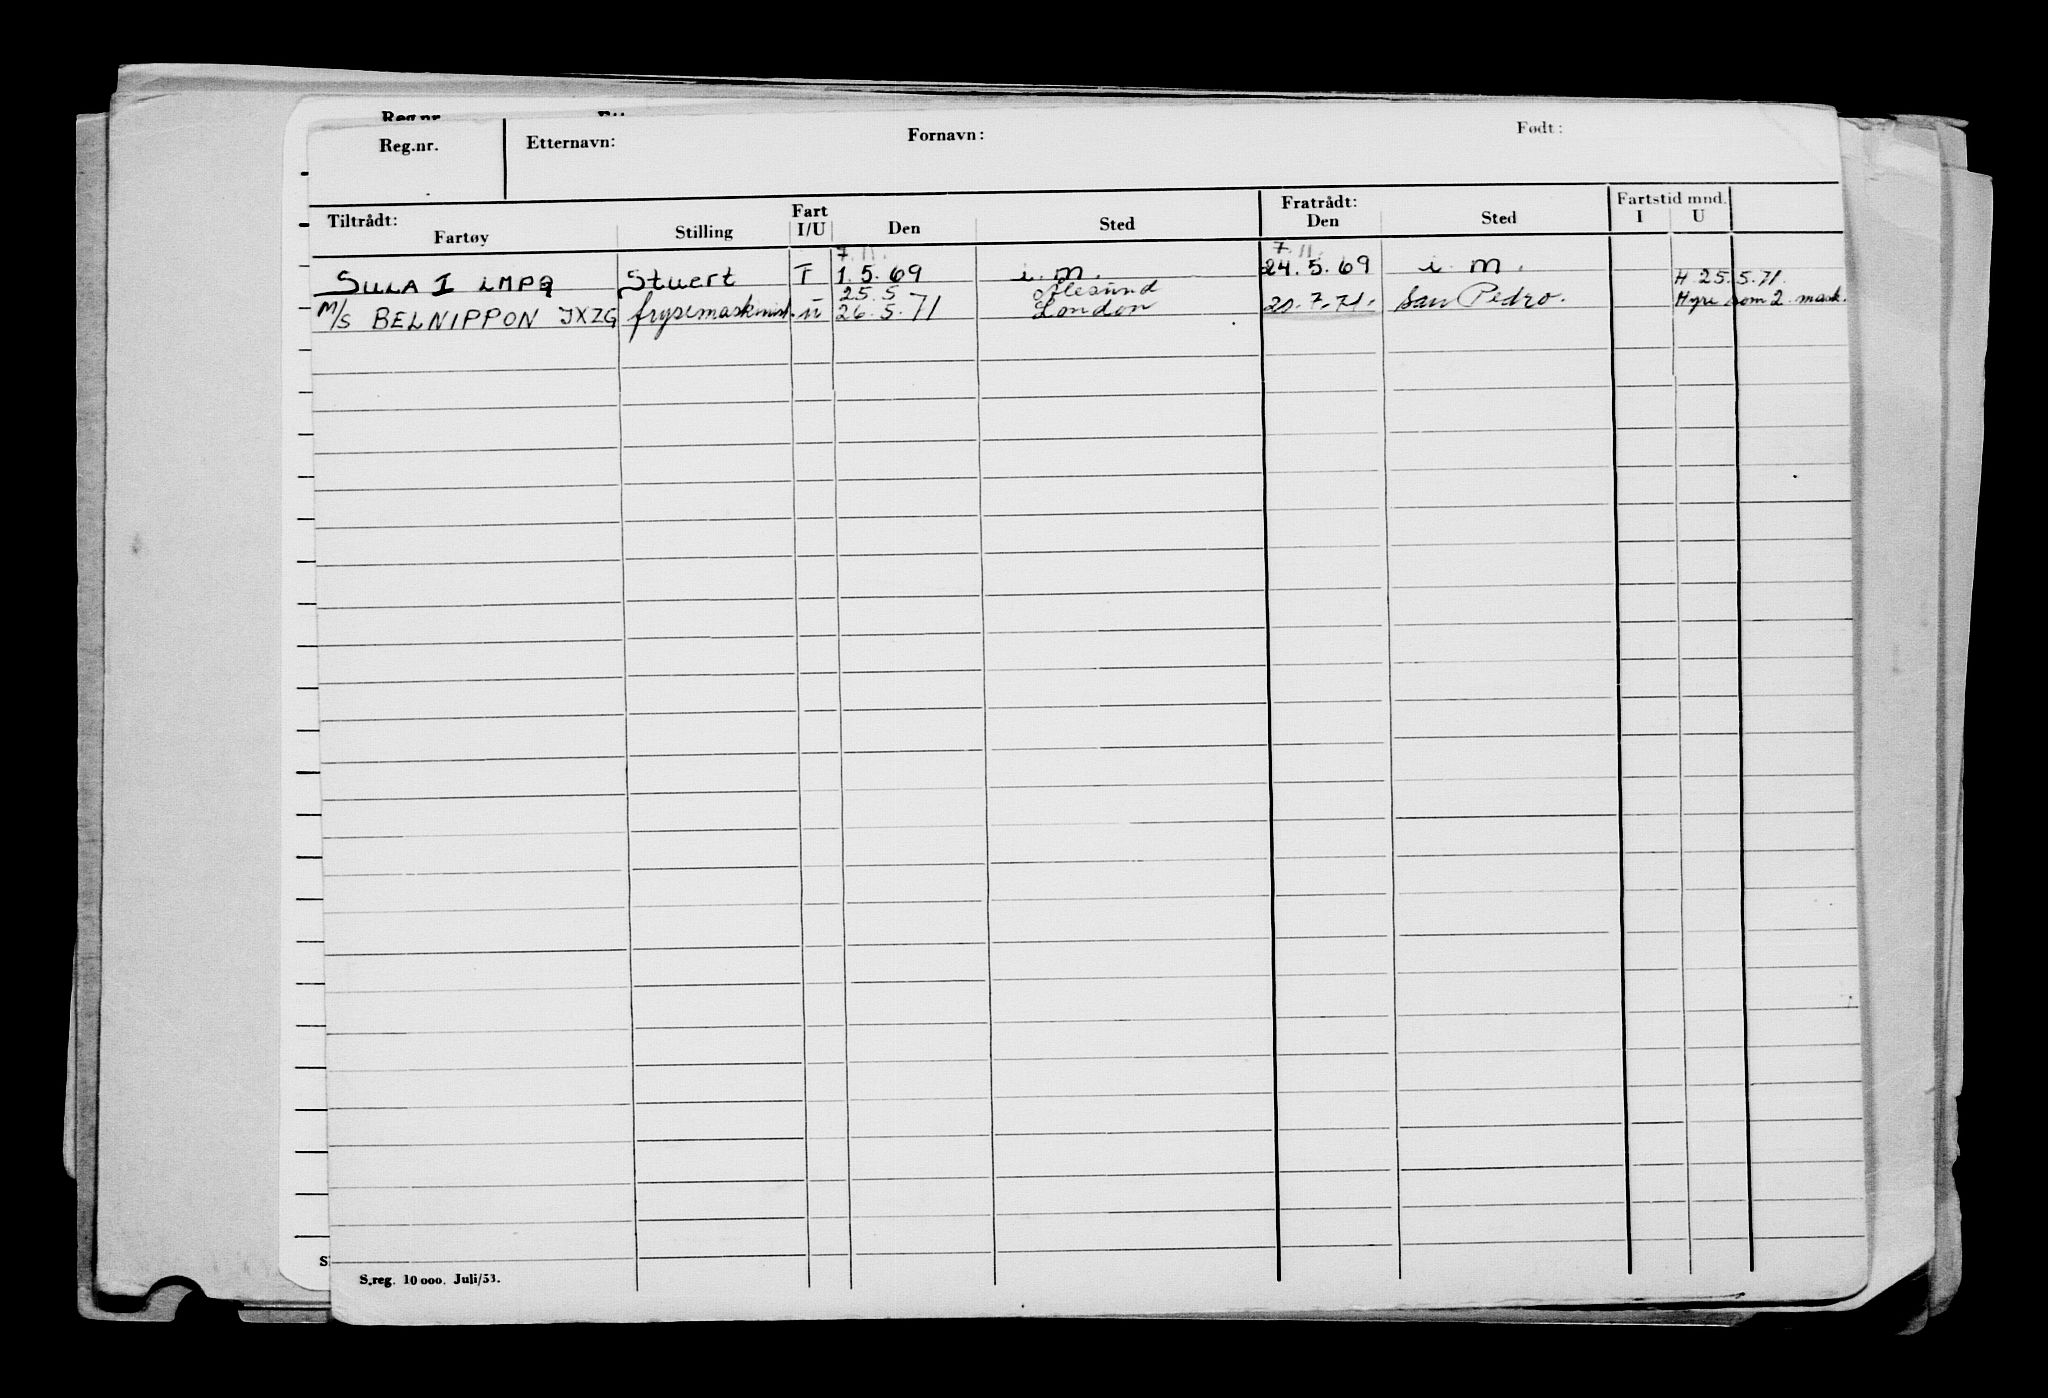 Reg.nr.
Reg.nr. Etternavn: Fornavn: Født:
Tiltrådt: Fartøy Stilling Fart I/U Den Sted Fratrådt: Den Sted Fartstid mnd. I U
7.11. 7.11.
SULA I LMPQ Stuert I 1.5.69 i. m. 24.5.69 i. m.
25.5 Ålesund H 25.5.71.
M/S BELNIPPON JXZG frysemaskinist. U 26.5.71 London 20.7.71. San Pedro. Hyre som 2 mask.
S.reg. 10 000. Juli/53.